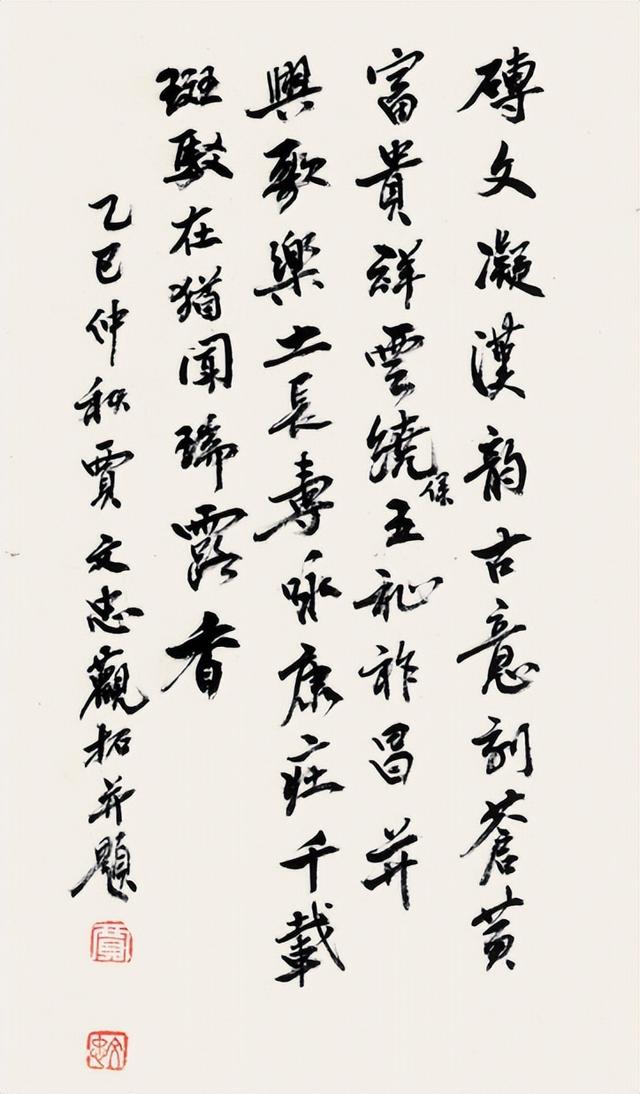 磚文凝漢韵古意刻蒼黃
富貴祥雲繞保王祉祚昌并
興歌樂土長壽咏康莊千載
斑駁在猶聞瑞露香
乙巳仲秋賈文忠觀拓并題
賈
文忠